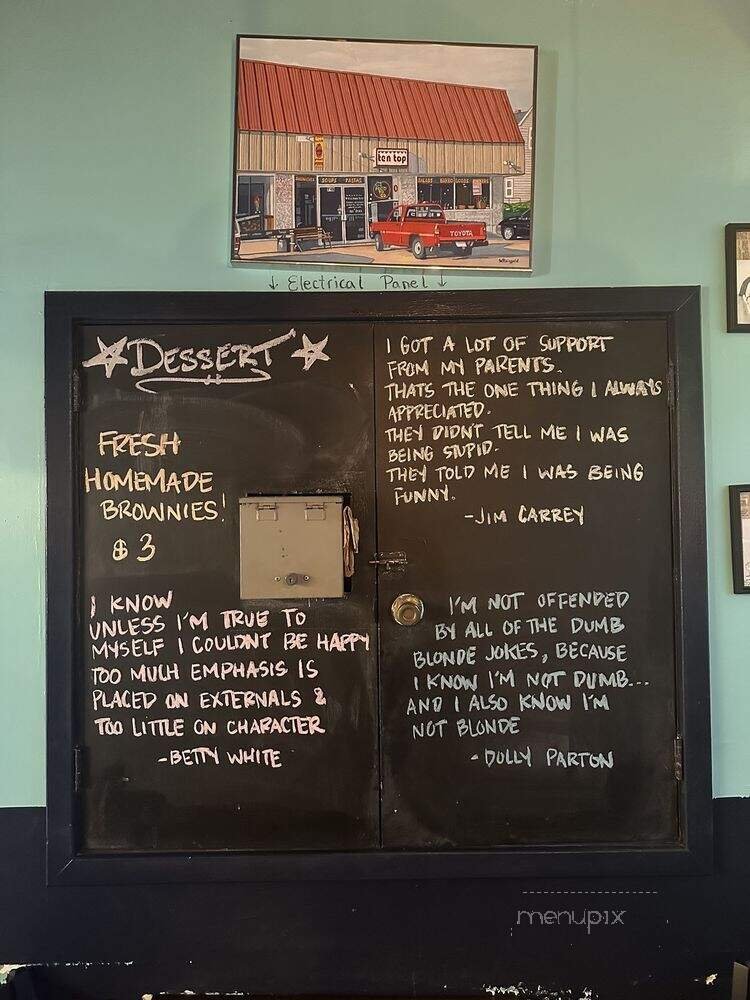 ten top
SOUPS PASTAS
TOYOTA
↓ Electrical Panel ↓
DESSERT
FRESH
HOMEMADE
BROWNIES!
$3
I KNOW
UNLESS I'M TRUE TO
MYSELF I COULDNT BE HAPPY
TOO MUCH EMPHASIS IS
PLACED ON EXTERNALS &
TOO LITTLE ON CHARACTER
-BETTY WHITE
I GOT A LOT OF SUPPORT
FROM MY PARENTS.
THATS THE ONE THING I ALWAYS
APPRECIATED.
THEY DIDNT TELL ME I WAS
BEING STUPID.
THEY TOLD ME I WAS BEING
FUNNY.
-JIM CARREY
I'M NOT OFFENDED
BY ALL OF THE DUMB
BLONDE JOKES, BECAUSE
I KNOW I'M NOT DUMB...
AND I ALSO KNOW I'M
NOT BLONDE
-DOLLY PARTON
menupix